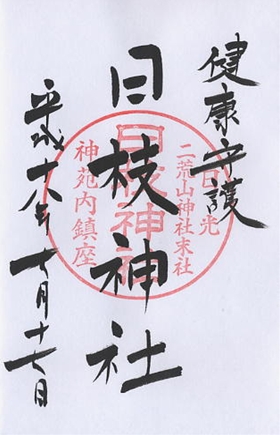 健康守護
日光
二荒山神社末社
日枝神社
日枝神社
神苑内鎮座
平成十八年十月十七日